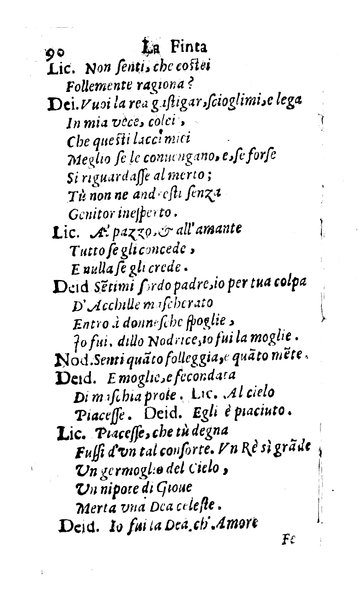 90 La Finta
Lic. Non senti, che costei
Follemente ragiona?
Dei. Vuoi la rea gastigar, scioglimi, e lega
In mia vece, colei,
Che questi lacci miei
Meglio se le convengano, e, se forse
Si riguardasse al merto;
Tù non ne andresti senza
Genitor inesperto.
Lic. A' pazzo, & all'amante
Tutto se gli concede,
E nulla se gli crede.
Deid Sẽtimi sordo padre, io per tua colpa
D'Acchille mascherato
Entro à donnesche spoglie,
Io fui, dillo Nodrice, io fui la moglie.
Nod. Senti quãto folleggia, e quãto mẽte.
Deid. E moglie, e fecondata
Di maschia prole. Lic. Al cielo
Piacesse. Deid. Egli è piaciuto.
Lic. Piacesse, che tù degna
Fussi d'vn tal consorte. Vn Rè sì grãde
Vn germoglio del Cielo,
Vn nipote di Gioue
Merta vna Dea celeste.
Deid. Io fui la Dea, ch'Amore
Fe